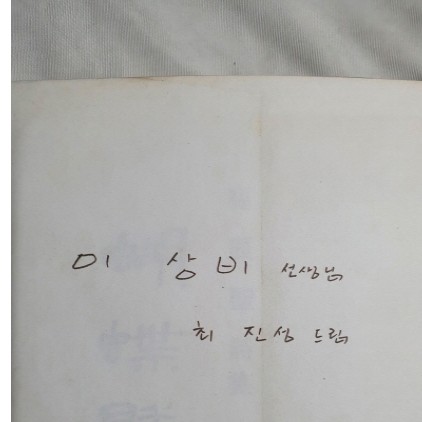 이 상비 선생님
최 진성 드림